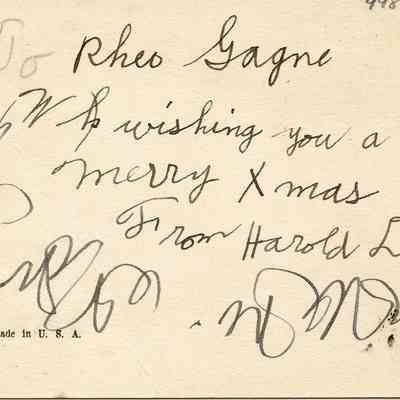 To Rheo Gagne
wishing you a
merry Xmas
From Harold L
ade in U. S. A.